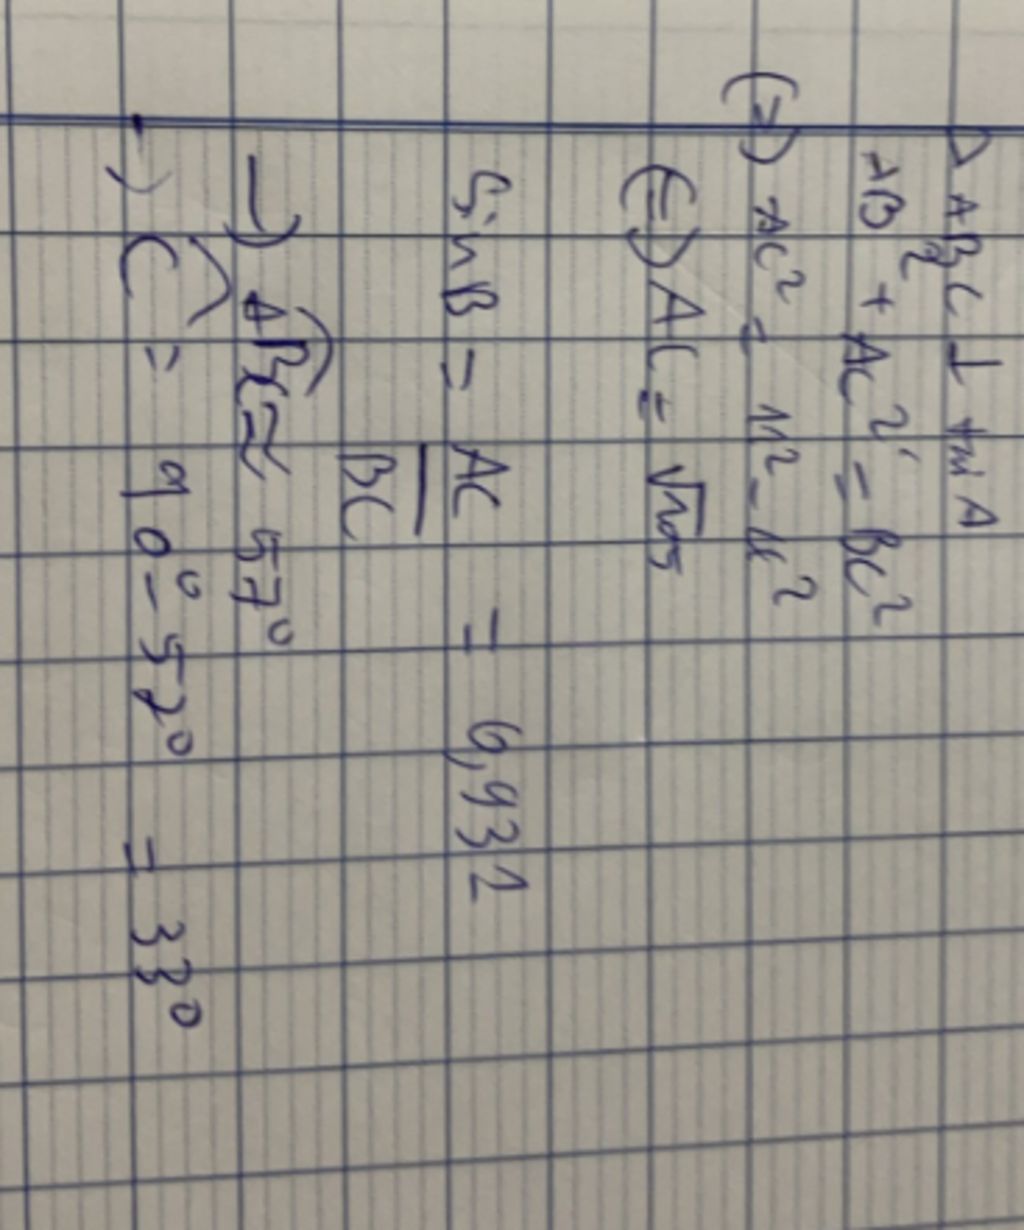 Δ ABC ⊥ tại A
AB² + AC² = BC²
(=) AC² = 11² - 6²
(=) AC = √105
SinB = AC/BC = 6,931
→ ABC ≈ 57°
→ Ĉ = 90° - 57° = 33°